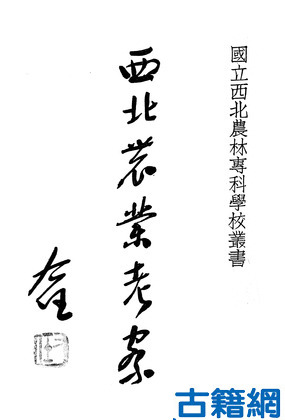 國立西北農林專科學校叢書
西北農業考察
右任
古籍網